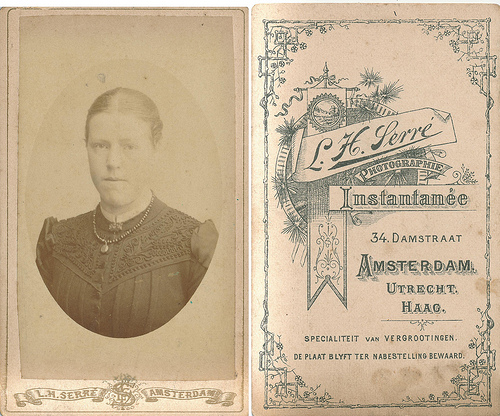 L.H. SERRÉ AMSTERDAM
L. H. Serré
PHOTOGRAPHIE
Instantanée
34. DAMSTRAAT
AMSTERDAM.
UTRECHT.
HAAG.
SPECIALITEIT VAN VERGROOTINGEN.
DE PLAAT BLYFT TER NABESTELLING BEWAARD.